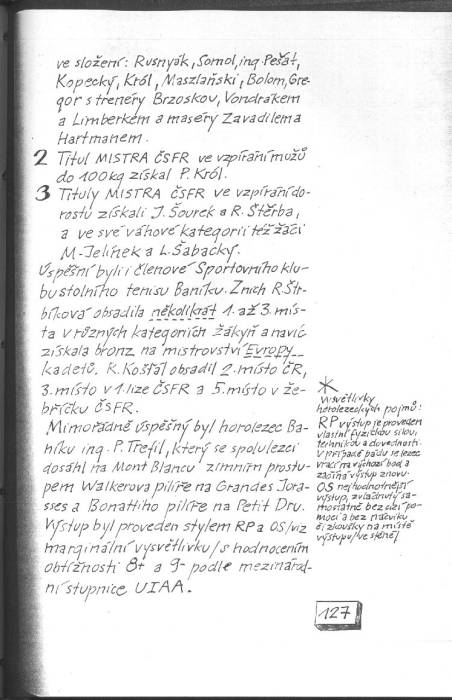 ve složení: Rusnyák, Somol, ing. Pešat,
Kopecký, Król, Maszlański, Bolom, Gre-
gor s trenéry Brzoskou, Vondrákem
a Limberkem a maséry Zavadilem a
Hartmanem.
2 Titul MISTRA ČSFR ve vzpírání mužů
do 100 kg získal P. Król.
3 Tituly MISTRA ČSFR ve vzpírání do-
rostu získali J. Šourek a R. Štěrba,
a ve své váhové kategorii též žáci
M. Jelínek a L. Šabacký.
Úspěšní byli i členové Sportovního klu-
bu stolního tenisu Baníku. Z nich R. Štr-
bíková obsadila několikrát 1. až 3. mís-
ta v různých kategoriích žákyň a navíc
získala bronz na mistrovství Evropy
kadetů. K. Košťál obsadil 2. místo ČR,
3. místo v 1. lize ČSFR a 5. místo v že-
bříčku ČSFR.
Mimořádně úspěšný byl horolezec Ba-
níku ing. P. Trefil, který se spolulezci
dosáhl na Mont Blancu zimním prostu-
pem Walkerova pilíře na Grandes Jora-
sses a Bonattiho pilíře na Petit Dru.
Výstup byl proveden stylem RP a OS /viz
marginální vysvětlivku/ s hodnocením
obtížnosti 8+ a 9- podle mezinárod-
ní stupnice UIAA.
*
Vysvětlivky
horolezeckých pojmů:
RP výstup je proveden
vlastní fyzickou silou,
technikou a dovedností.
V případě pádu se lezec
vrací na výchozí bod a
začíná výstup znovu.
OS nejhodnotnější
výstup, zvládnutý sa-
mostatně bez cizí po-
moci a bez nácviku
či zkoušky na místě
výstupu /ve stěně/
127